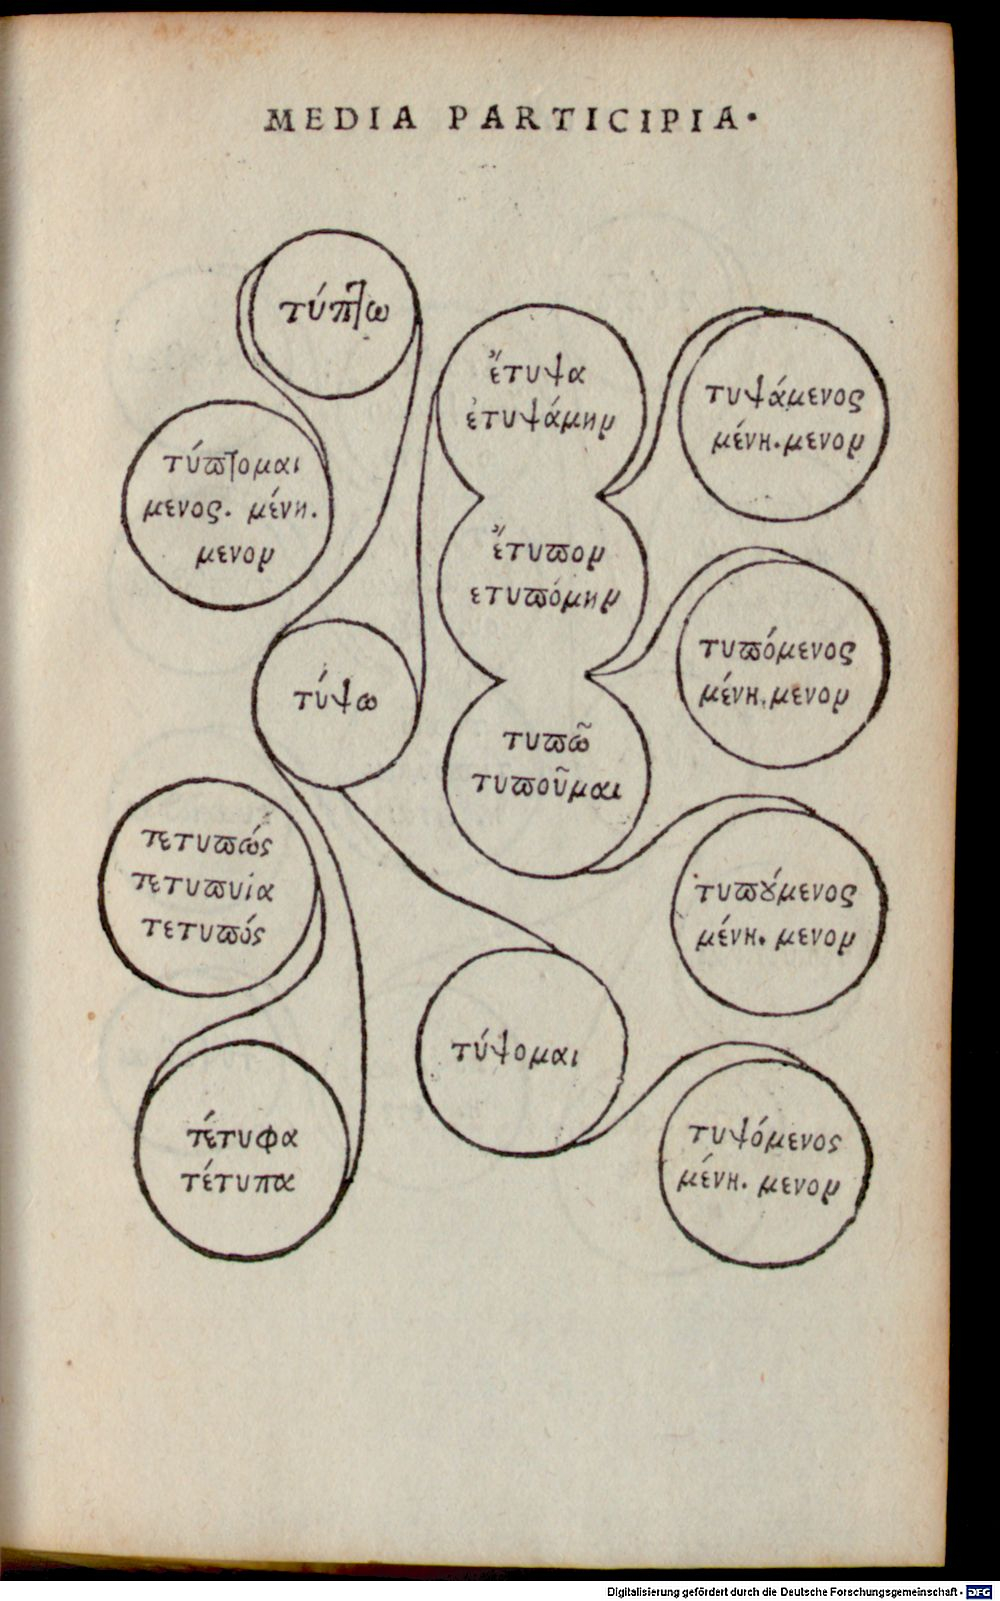 MEDIA PARTICIPIA.
τύπτω
τύπτομαι
μενος. μένη.
μενον
ἔτυψα
ἐτυψάμην
τυψάμενος
μένη. μενον
ἔτυπον
ετυπόμην
τυπόμενος
μένη. μενον
τύψω
τυπῶ
τυποῦμαι
τετυπώς
τετυπυία
τετυπός
τυπούμενος
μένη. μενον
τύψομαι
τέτυφα
τέτυπα
τυψόμενος
μένη. μενον
Digitalisierung gefördert durch die Deutsche Forschungsgemeinschaft - DFG